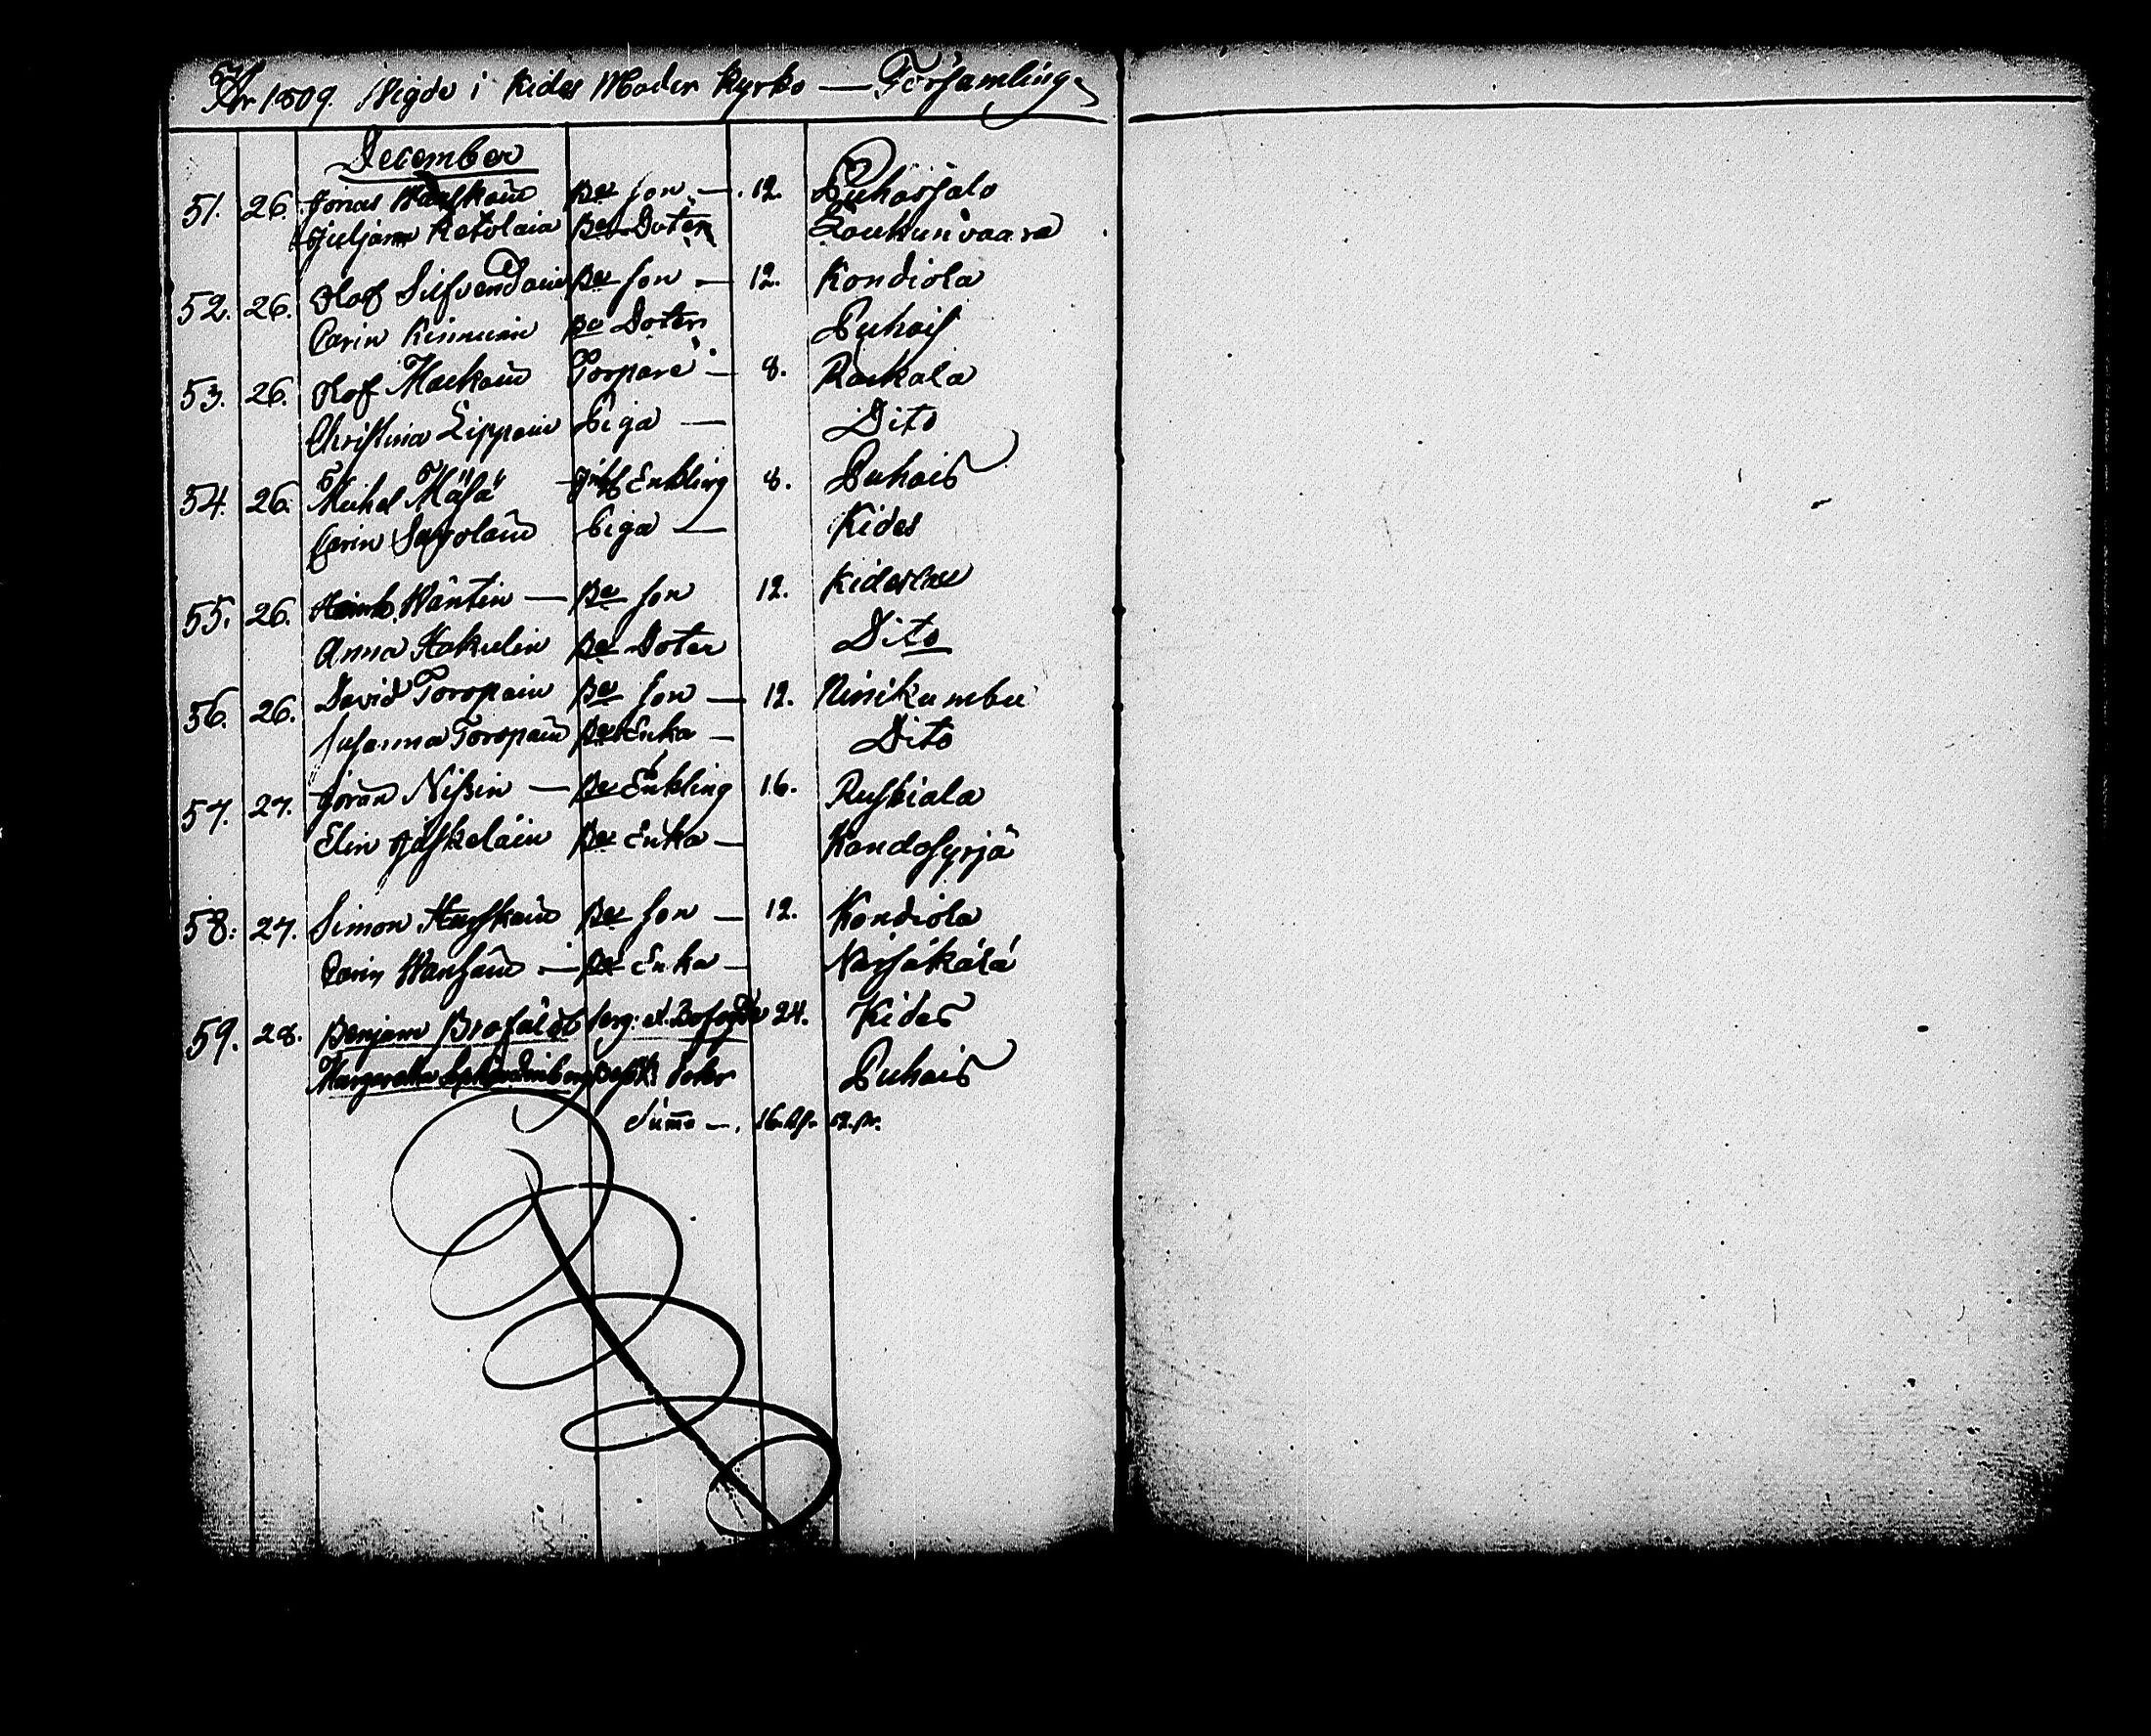 År 1809. Wigde i Kides Moder Kyrko — Församling
December
51. 26. Jonas Be Son — 12. Puhossalo
Juljana Ratolain Be Doter Loukunvaara
52. 26. Olof Silfvendoin Be Son — 12. Kondiola
Carin Kinnuin Be Doter Puhois
53. 26. Olof Mackoin Torpare — 8. Rackala
Christina Lippoin Piga — Dito
54. 26. Michel Mäsä Enkling 8. Puhois
Carin Sapolain Piga — Kides
55. 26. Henrik Wäntin — Be Son 12. Kideslax
Anna Hakulin Be Doter Dito
56. 26. David Toropain Be Son — 12. Niinikumbu
Susanna Toropain Be Enka — Dito
57. 27. Jöran Nissin — Be Enkling 16. Ruskiala
Elin Jäskeläin Be Enka — Kandosyrjä
58. 27. Simon Be Son — 12. Kondiola
Carin Wansain — Be Enka — Närsäkälä
59. 28. Benjam 24. Kides
Margaretha Doter Puhois
Summa —. 16. 52.